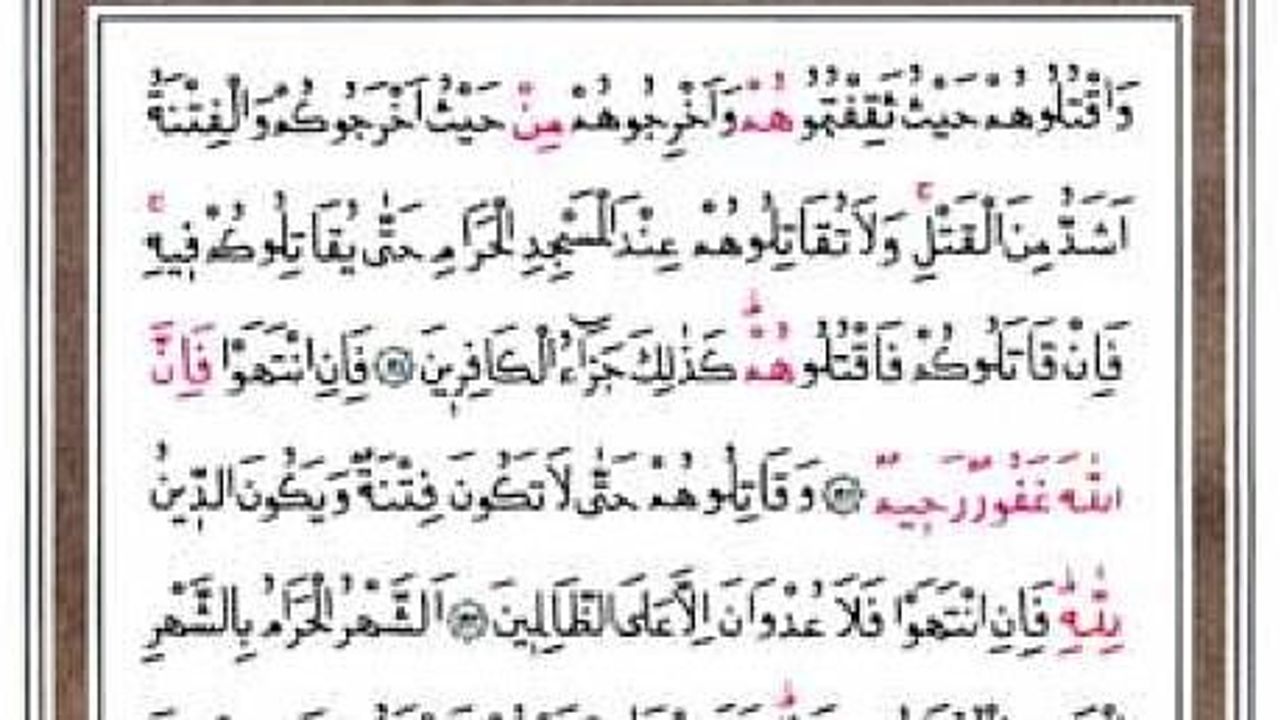 وَاقْتُلُوهُمْ حَيْثُ ثَقِفْتُمُوهُمْ وَاَخْرِجُوهُمْ مِنْ حَيْثُ اَخْرَجُوكُمْ وَالْفِتْنَةُ
اَشَدُّ مِنَ الْقَتْلِۚ وَلَا تُقَاتِلُوهُمْ عِنْدَ الْمَسْجِدِ الْحَرَامِ حَتّٰى يُقَاتِلُوكُمْ فِيهِۚ
فَاِنْ قَاتَلُوكُمْ فَاقْتُلُوهُمْۜ كَذٰلِكَ جَزَٓاءُ الْكَافِرِينَ ﴿١٩١﴾ فَاِنِ انْتَهَوْا فَاِنَّ
اللّٰهَ غَفُورٌ رَحِيمٌ ﴿١٩٢﴾ وَقَاتِلُوهُمْ حَتّٰى لَا تَكُونَ فِتْنَةٌ وَيَكُونَ الدِّينُ
لِلّٰهِۜ فَاِنِ انْتَهَوْا فَلَا عُدْوَانَ اِلَّا عَلَى الظَّالِمِينَ ﴿١٩٣﴾ اَلشَّهْرُ الْحَرَامُ بِالشَّهْرِ